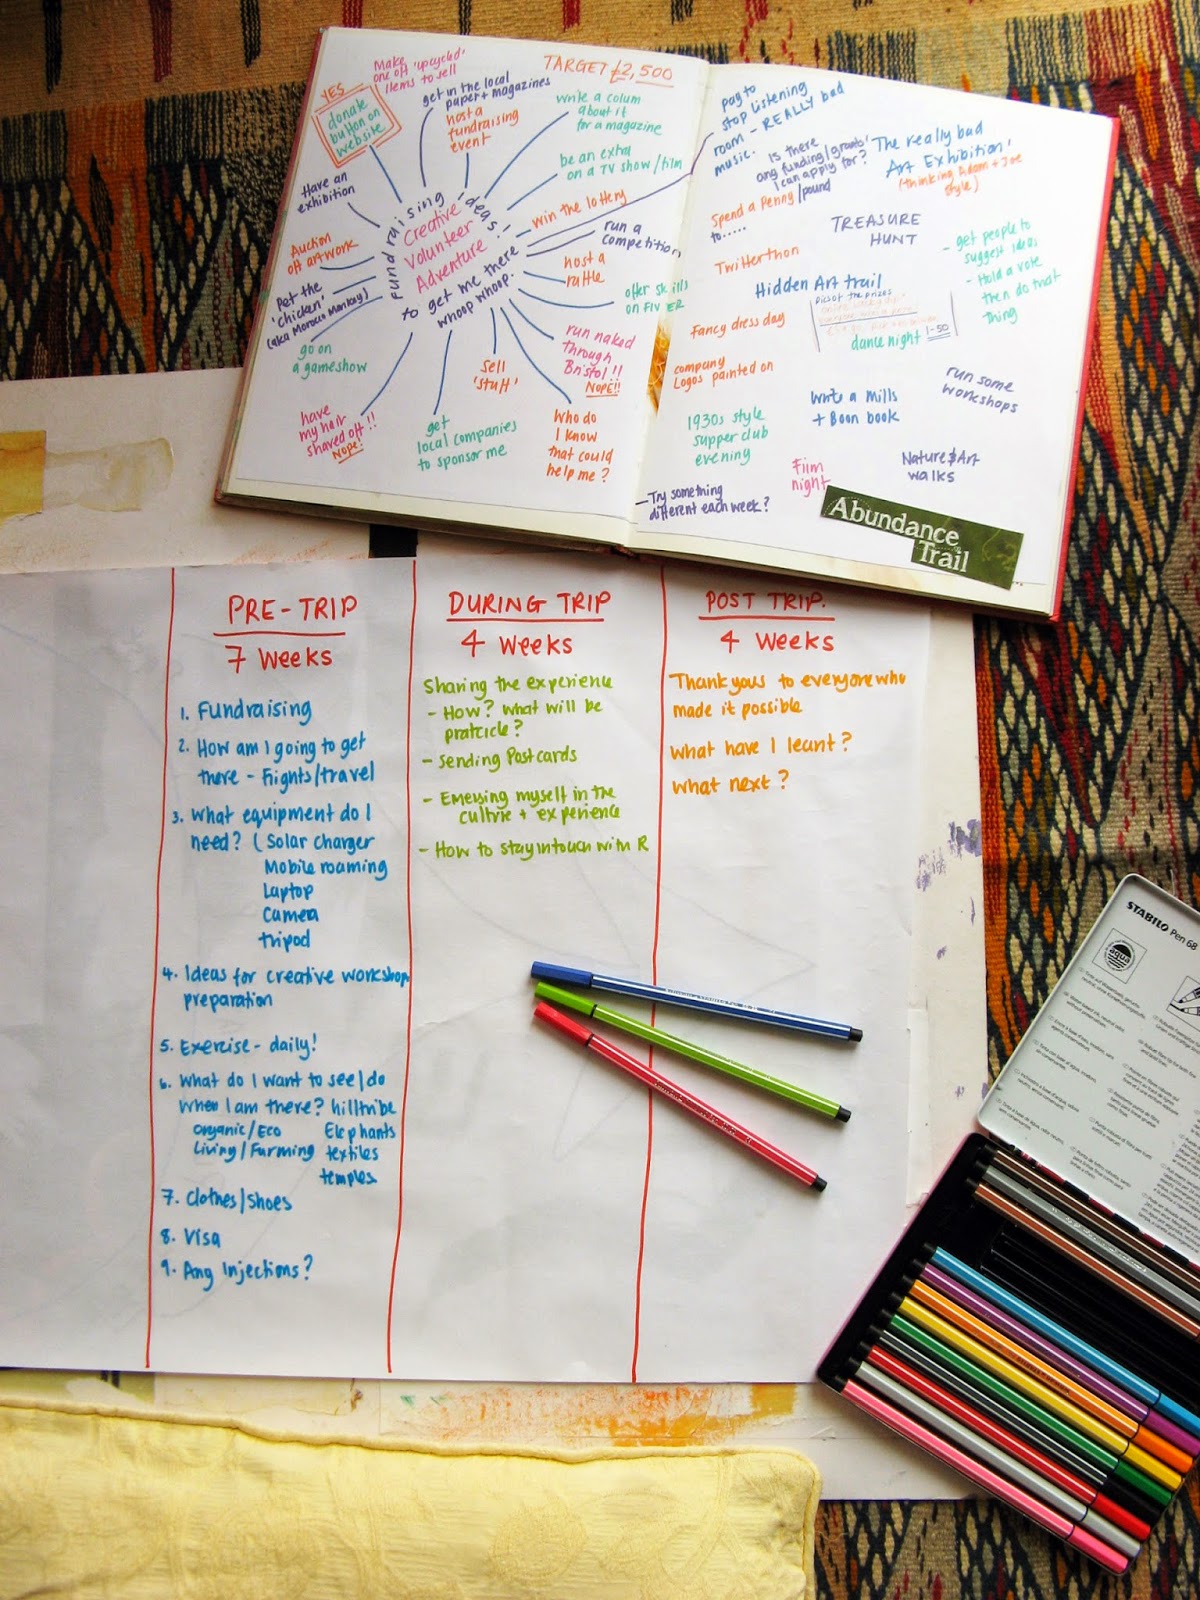 TARGET £2,500
YES
donate
button on
website
Make
one off 'upcycled'
items to sell
get in the local
paper + magazines
host a
fundraising
event
write a colum
about it
for a magazine
be an extra
on a TV show/film
win the lottery
run a
competition
host a
raffle
offer skills
on FIVER
run naked
through
Bristol!!
NOPE!!
Who do
I know
that could
help me?
sell
'stuff'
get
local companies
to sponsor me
have
my hair
shaved off!!
Nope!
go on
a gameshow
Pet the
'chicken'
(aka Morocco Monkey)
Auction
off artwork
Have an
exhibition
fundraising ideas!
Creative
Volunteer
Adventure
to get me there
whoop whoop.
pay to
stop listening
room - REALLY bad
music.
Is there
any funding/grants
I can apply for?
'The really bad
Art Exhibition'
(thinking Adam + Joe
style)
Spend a Penny/pound
to.....
TREASURE
HUNT
Twitterthon
- get people to
suggest ideas
- Hold a vote
then do that
thing
Hidden Art trail
Pics of the prizes
Fancy dress day
dance night 1-50
company
Logos painted on
write a mills
+ Boon book
run some
workshops
1930s style
supper club
evening
Film
night
Nature & Art
walks
- Try something
different each week?
Abundance
Trail
PRE-TRIP
7 Weeks
1. Fundraising
2. How am I going to get
there - Flights/travel
3. What equipment do I
need? (Solar charger
Mobile roaming
Laptop
Camea
tripod
4. Ideas for creative workshop
preparation
5. Exercise - daily!
6. What do I want to see/do
when I am there? hilltribe
organic/Eco Elephants
Living/Farming textiles
temples
7. Clothes/Shoes
8. Visa
9. Any Injections?
DURING TRIP
4 Weeks
Sharing the experience
- How? What will be
pratcicle?
- Sending Postcards
- Emersing myself in the
cultrie + experience
- How to stay in touch with R
POST TRIP.
4 Weeks
Thankyous to everyone who
made it possible
What have I leant?
What next?
STABILO Pen 68
aqua